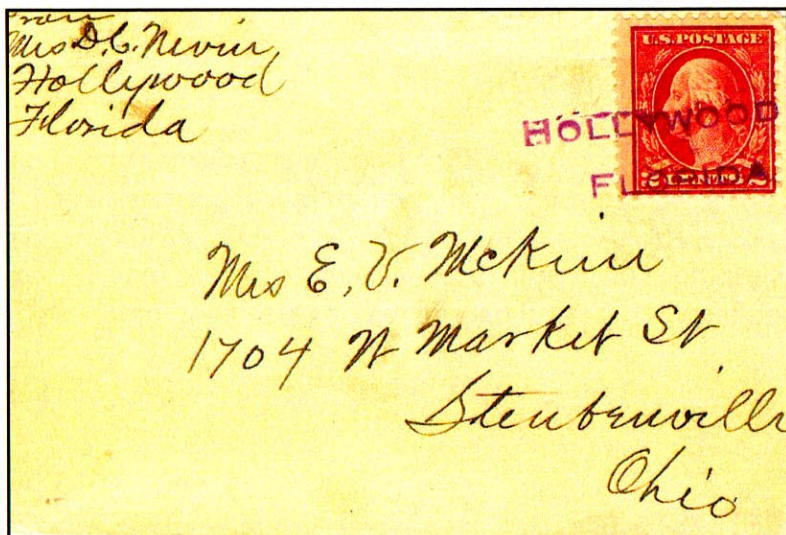 From
Mrs D. C. Nevin
Hollywood
Florida
U.S. POSTAGE
HOLLYWOOD
FLORIDA
2 CENTS 2
Mrs E. V. McKinn
1704 W Market St
Steubenville
Ohio